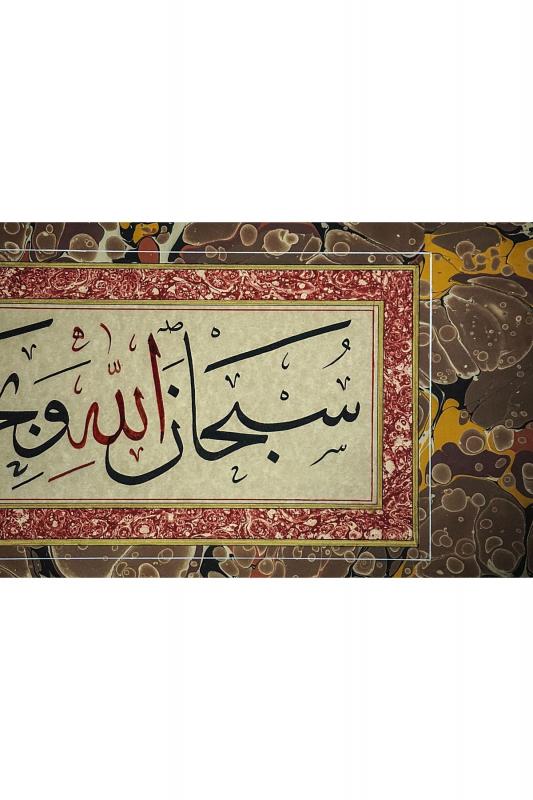 سُبْحَانَ اللّٰهِ وَبِحَ